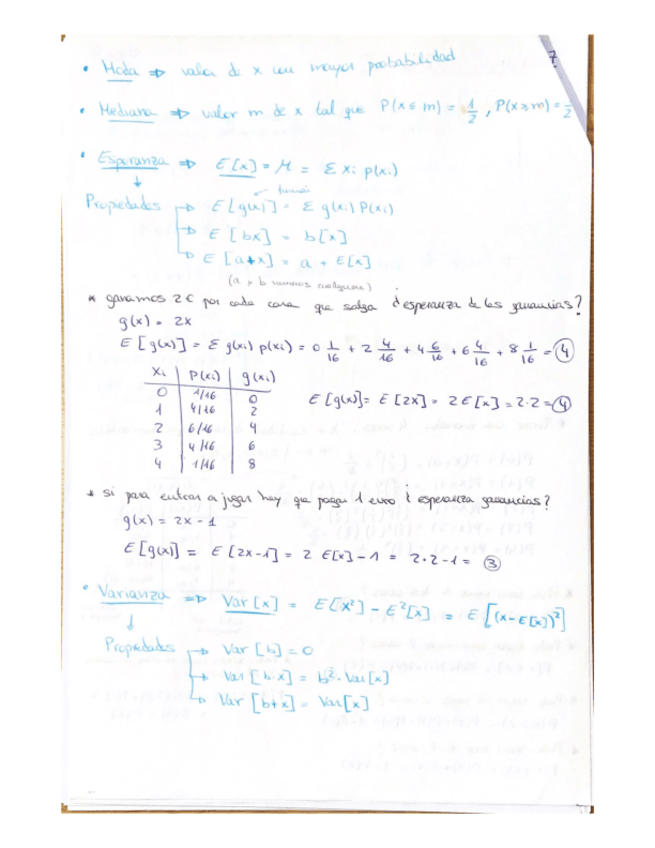 7.
• Moda ⇒ valor de x con mayor probabilidad
• Mediana ⇒ valor m de x tal que P(x ≤ m) = 1/2 , P(x ≥ m) = 1/2
• Esperanza ⇒ E[x] = M = Σ xi p(xi)
↓
Propiedades → E[g(x)] = Σ g(xi) P(xi)
→ E[bx] = b[x]
→ E[a+x] = a + E[x]
(a y b números cualquiera)
* ganamos 2€ por cada cara que salga ¿esperanza de las ganancias?
g(x) = 2x
E[g(x)] = Σ g(xi) p(xi) = 0 1/16 + 2 4/16 + 4 6/16 + 6 4/16 + 8 1/16 = 4
xi | P(xi) | g(xi)
0 | 1/16 | 0
1 | 4/16 | 2
2 | 6/16 | 4
3 | 4/16 | 6
4 | 1/16 | 8
E[g(x)] = E[2x] = 2E[x] = 2·2 = 4
* si para entrar a jugar hay que pagar 1 euro ¿esperanza ganancias?
g(x) = 2x - 1
E[g(x)] = E[2x-1] = 2 E[x] - 1 = 2·2-1 = 3
• Varianza ⇒ Var[x] = E[x²] - E²[x] = E[(x-E[x])²]
↓
Propiedades → Var[b] = 0
→ Var[b·x] = b²·Var[x]
→ Var[b+x] = Var[x]